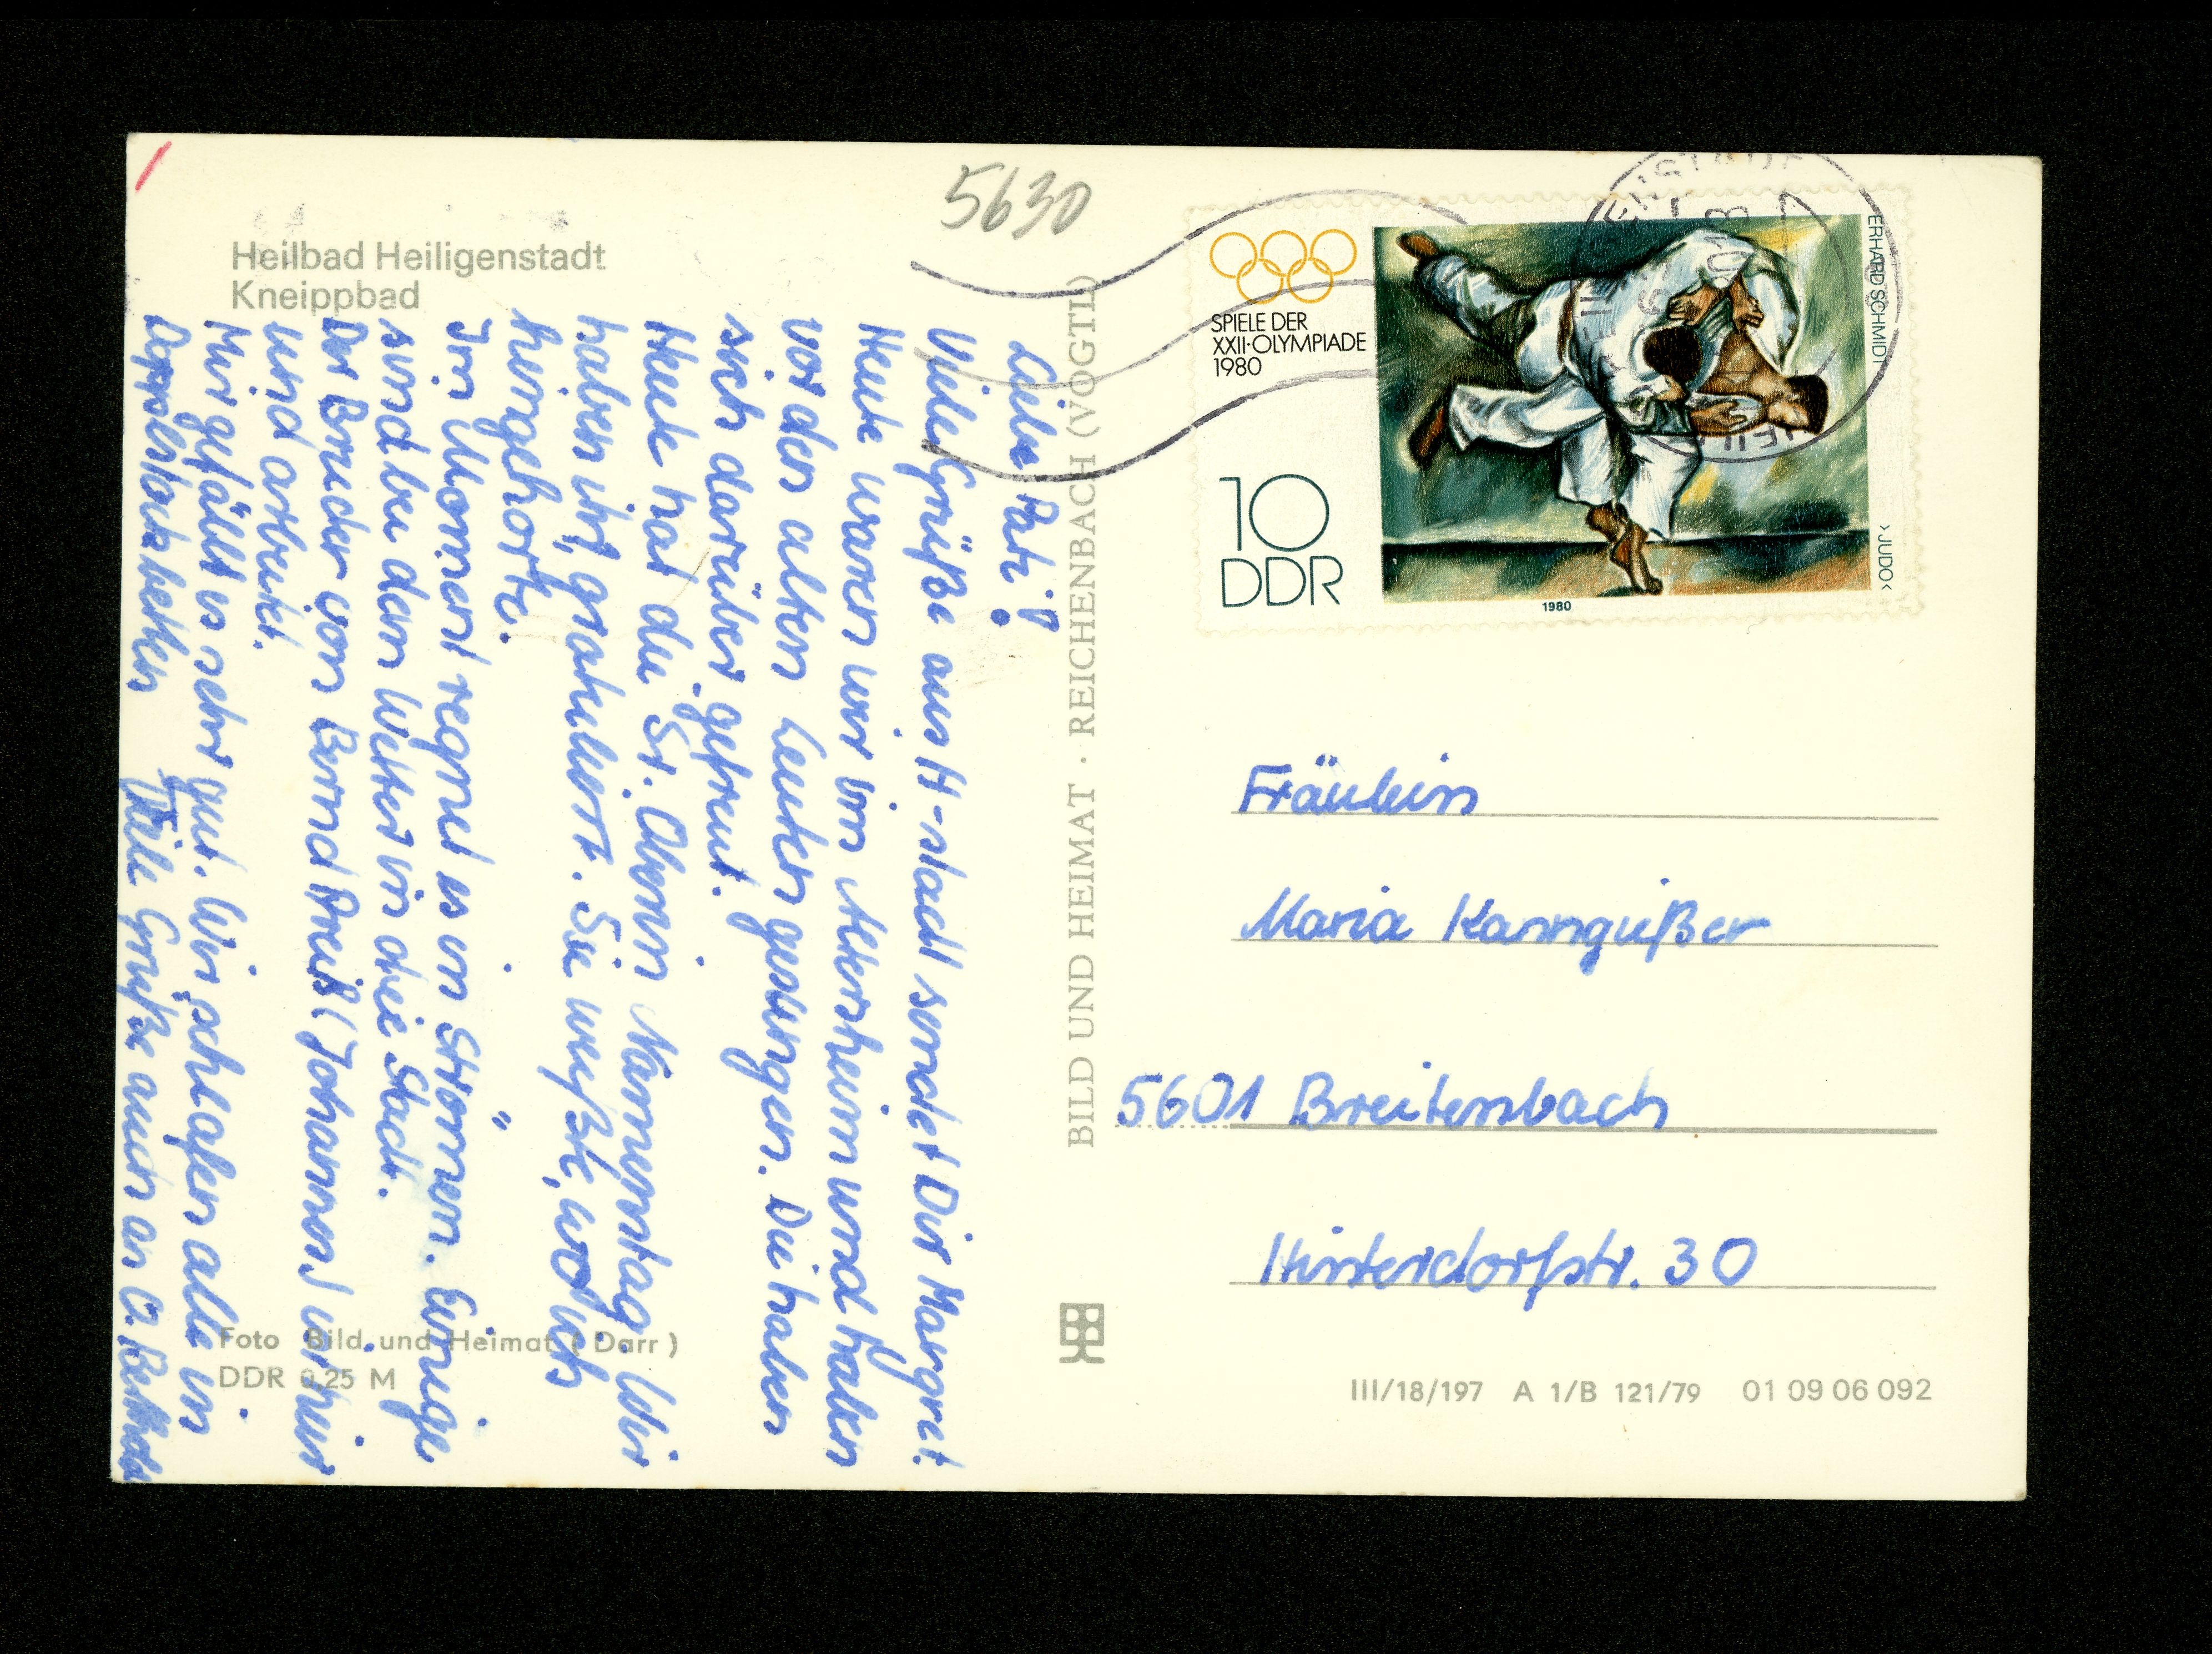 Heilbad Heiligenstadt
Kneippbad
5630
Liebe Pati!
Viele Grüße aus H-stadt sendet Dir Margret.
Heute waren wir im Altersheim und haben
vor den alten Leuten gesungen. Die haben
sich darüber gefreut.
Heute hat die Sr. Namenstag. Wir
haben ihr gratuliert. Sie wußte, wo ich
hingehörte.
Im Moment regnet es in Strömen. Einige
sind bei dem Wetter in die Stadt.
Der Bruder von Bernd (Johannes) ist hier
und arbeitet.
Mir gefällt es sehr gut. Wir schlafen alle in
Doppelstockbetten Viele Grüße auch an
Foto Bild und Heimat (Darr)
DDR 0,25 M
BILD UND HEIMAT · REICHENBACH (VOGTL)
SPIELE DER
XXII·OLYMPIADE
1980
10
DDR
ERHARD SCHMIDT
>JUDO<
1980
Fräulein
Maria Kanngießer
5601 Breitenbach
Hinterdorfstr. 30
III/18/197 A 1/B 121/79 01 09 06 092